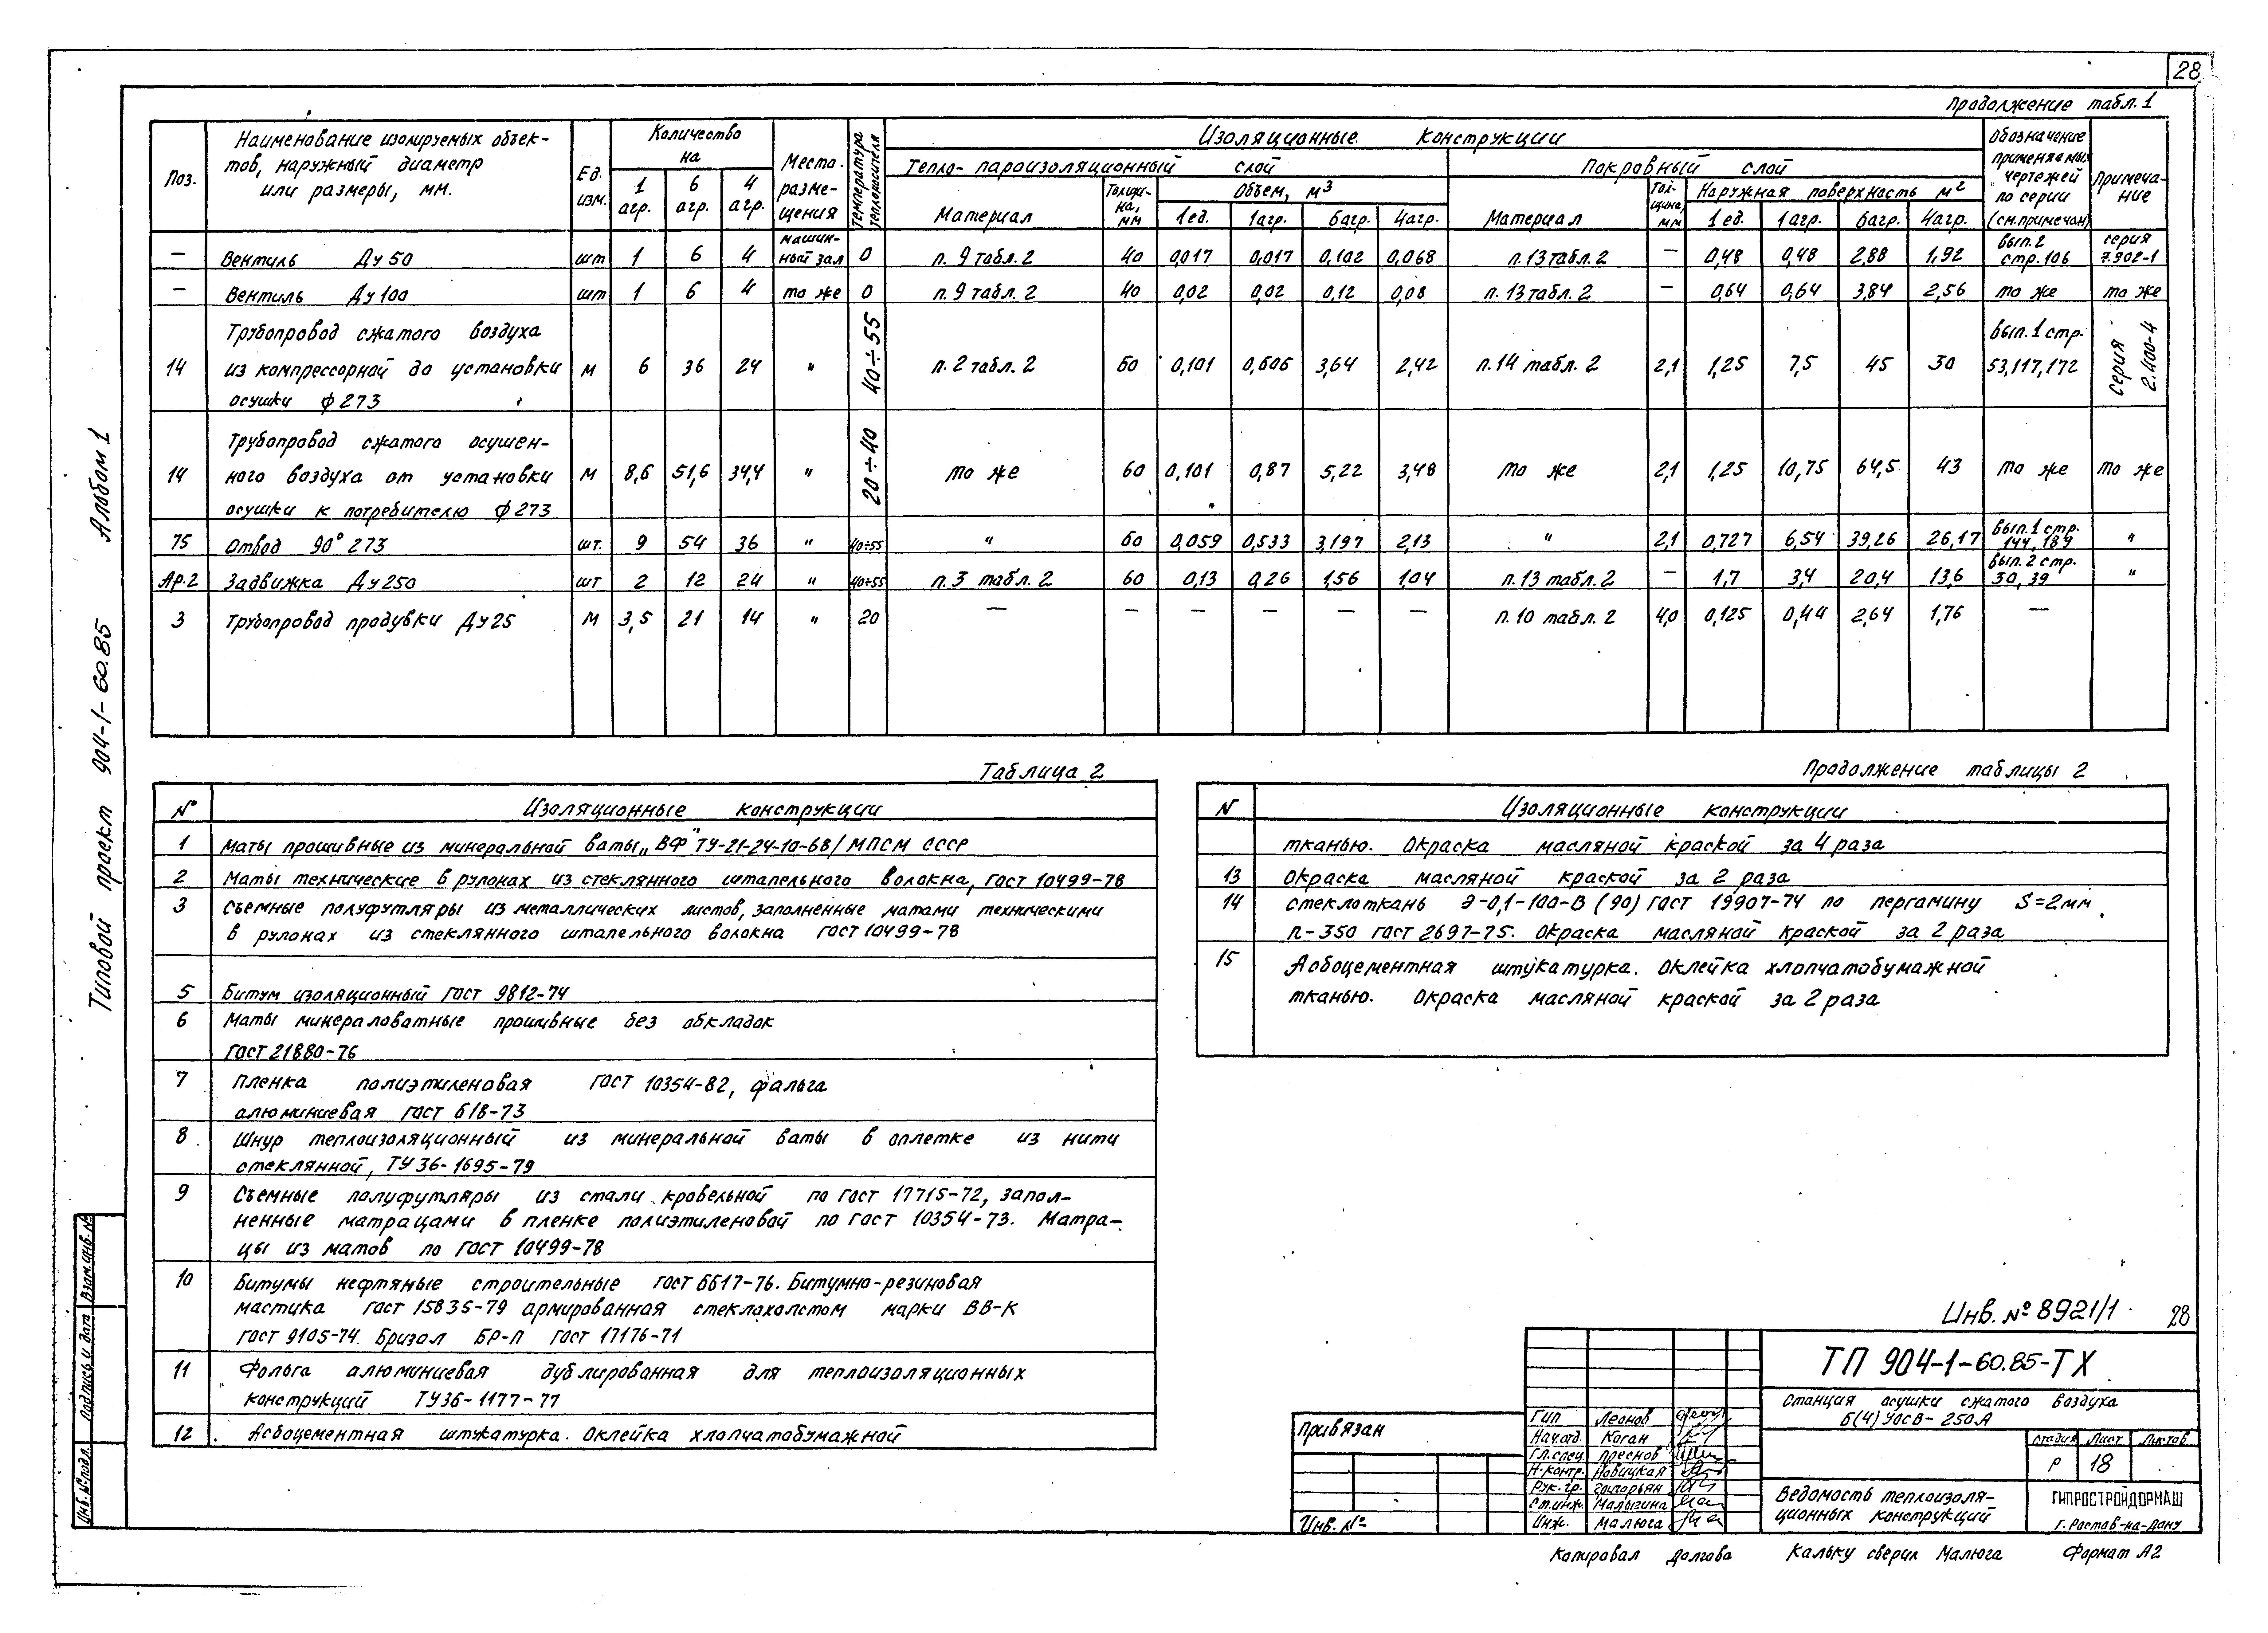 28
Продолжение табл. 1
Поз.
Наименование изолируемых объек-
тов, наружный диаметр
или размеры, мм.
Ед.
изм.
Количество
на
1 агр.
6 агр.
4 агр.
Место.
разме-
щения
Температура
теплоносителя
Изоляционные конструкции
Тепло-пароизоляционный слой
Материал
Толщи-
на,
мм
Объем, м³
1ед. 1агр. 6агр. 4агр.
Покровный слой
Материал
Тол-
щина,
мм
Наружная поверхность м²
1 ед. 1 агр. 6агр. 4агр.
Обозначение
применяемых
чертежей
по серии
(см.примечан)
Примеча-
ние
— Вентиль Ду 50 шт 1 6 4 машин-
ный зал 0 п. 9 табл. 2 40 0,017 0,017 0,102 0,068 п.13 табл. 2 — 0,48 0,48 2,88 1,92 вып. 2
стр. 106 серия
7.902-1
— Вентиль Ду 100 шт 1 6 4 то же 0 п. 9 табл. 2 40 0,02 0,02 0,12 0,08 п. 13 табл. 2 — 0,64 0,64 3,84 2,56 то же то же
Трубопровод сжатого воздуха
14 из компрессорной до установки м 6 36 24 " 40÷55 п. 2 табл. 2 60 0,101 0,606 3,64 2,42 п.14 табл. 2 2,1 1,25 7,5 45 30 вып. 1 стр.
53,117,172 серия
2.400-4
осушки ф 273
Трубопровод сжатого осушен-
14 ного воздуха от установки м 8,6 51,6 34,4 " 20÷40 то же 60 0,101 0,87 5,22 3,48 то же 2,1 1,25 10,75 64,5 43 то же то же
осушки к потребителю ф 273
75 Отвод 90° 273 шт. 9 54 36 " 40÷55 " 60 0,059 0,533 3,197 2,13 " 2,1 0,727 6,54 39,26 26,17 вып. 1 стр.
144, 189 "
Ар.2 Задвижка Ду 250 шт 2 12 24 " 40÷55 п. 3 табл. 2 60 0,13 0,26 1,56 1,04 п. 13 табл. 2 — 1,7 3,4 20,4 13,6 вып. 2 стр.
30, 39 "
3 Трубопровод продувки Ду 25 м 3,5 21 14 " 20 — — — — — — п. 10 табл. 2 4,0 0,125 0,44 2,64 1,76 —
Таблица 2
№ Изоляционные конструкции
1 Маты прошивные из минеральной ваты „ВФ" ТУ-21-24-10-68/МПСМ СССР
2 Маты технические в рулонах из стеклянного штапельного волокна, ГОСТ 10499-78
3 Съемные полуфутляры из металлических листов, заполненные матами техническими
в рулонах из стеклянного штапельного волокна ГОСТ 10499-78
5 Битум изоляционный ГОСТ 9812-74
6 Маты минераловатные прошивные без обкладок
ГОСТ 21880-76
7 Пленка полиэтиленовая ГОСТ 10354-82, фольга
алюминиевая ГОСТ 618-73
8 Шнур теплоизоляционный из минеральной ваты в оплетке из нити
стеклянной, ТУ 36-1695-79
9 Съемные полуфутляры из стали кровельной по ГОСТ 17715-72, запол-
ненные матрацами в пленке полиэтиленовой по ГОСТ 10354-73. Матра-
цы из матов по ГОСТ 10499-78
10 Битумы нефтяные строительные ГОСТ 6617-76. Битумно-резиновая
мастика ГОСТ 15836-79 армированная стеклохолстом марки ВВ-К
ГОСТ 9105-74. Бризол БР-П ГОСТ 17176-71
11 Фольга алюминиевая дублированная для теплоизоляционных
конструкций ТУ36-1177-77
12 Асбоцементная штукатурка. Оклейка хлопчатобумажной
Продолжение таблицы 2
N Изоляционные конструкции
тканью. Окраска масляной краской за 4 раза
13 Окраска масляной краской за 2 раза
14 Стеклоткань Э-0,1-100-В (90) ГОСТ 19907-74 по пергамину S=2мм
П-350 ГОСТ 2697-75. Окраска масляной краской за 2 раза
15 Асбоцементная штукатурка. Оклейка хлопчатобумажной
тканью. Окраска масляной краской за 2 раза
Типовой проект 904-1-60.85 Альбом 1
Инв. № подл. Подпись и дата Взам.инв.№
Инв. № 8921/1 28
ТП 904-1-60.85-ТХ
Станция осушки сжатого воздуха
6(4)УОСВ-250А
Привязан
Инв. №
Гип Леонов
Нач.отд. Коган
Гл.спец. Преснов
Н.контр. Новицкая
Рук. гр. Григорьян
Ст.инж. Малыгина
Инж. Малюга
Стадия Лист Листов
Р 18
Ведомость теплоизоля-
ционных конструкций
ГИПРОСТРОЙДОРМАШ
г. Ростов-на-Дону
Копировал Долгова Кальку сверил Малюга Формат А2